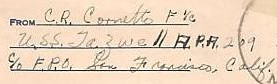 FROM C.R. Cornetto F 1/c
U.S.S. Tazwell A.P.A. 209
c/o F.P.O. San Francisco, Calif